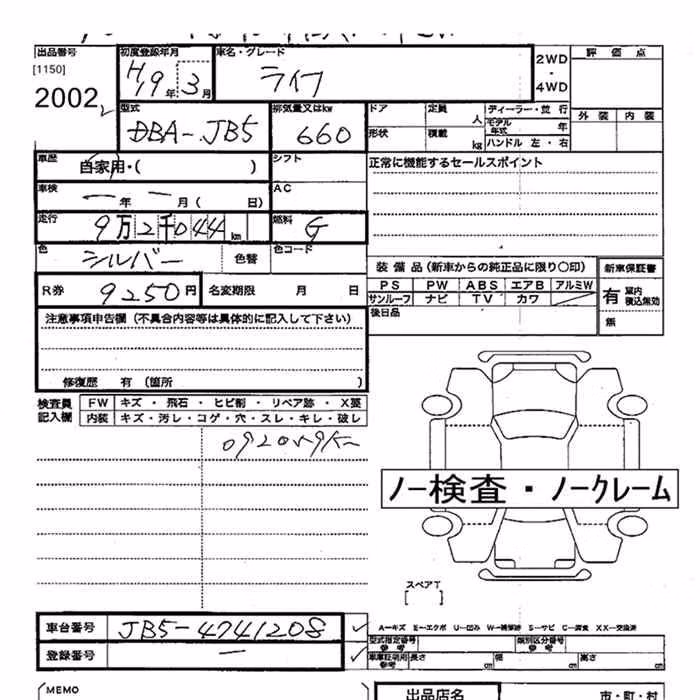 出品番号 初度登録年月 車名・グレード 2WD・4WD 評価点
[1150] H19年 3月 ライフ
2002 外装 内装
型式 排気量又はkw ドア 定員 人 ディーラー・並行
DBA-JB5 660 形状 積載 kg モデル年式 年
ハンドル 左・右
車歴 自家用・( ) シフト 正常に機能するセールスポイント
車検 年 月( 日) AC
走行 9万2千044km 燃料 G
色 シルバー 色替 色コード
装備品(新車からの純正品に限り○印) 新車保証書
R券 9250円 名変期限 月 日 PS PW ABS エアB アルミW 有 室内積込無効
サンルーフ ナビ TV カワ
注意事項申告欄(不具合内容等は具体的に記入して下さい) 後日品 無
修復歴 有(箇所 )
検査員記入欄 FW キズ・飛石・ヒビ割・リペア跡・X要
内装 キズ・汚レ・コゲ・穴・スレ・キレ・破レ
ノー検査・ノークレーム
スペアT
[ ]
車台番号 JB5-4741208 A−キズ E−エクボ U−凹み W−補修跡 S−サビ C−腐食 XX−交換済
型式指定番号 参考 類別区分番号 参考
登録番号 — 車庫証明用 参考 長さ cm 幅 cm 高さ cm
MEMO 出品店名 市・町・村